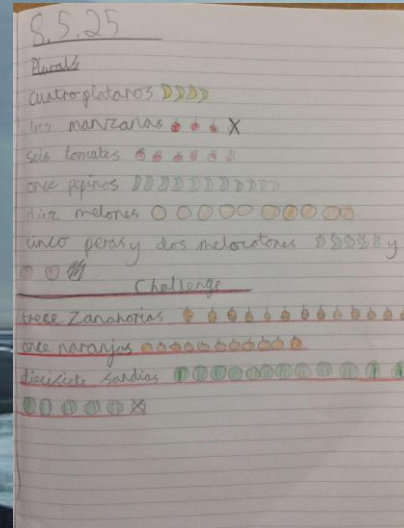 8.5.25
Plurals
cuatro platanos
tres manzanas X
seis tomates
once pepinos
diez melones
cinco peras y dos melocotones y
Challenge
trece zanahorias
once naranjas
diecisiete sandias